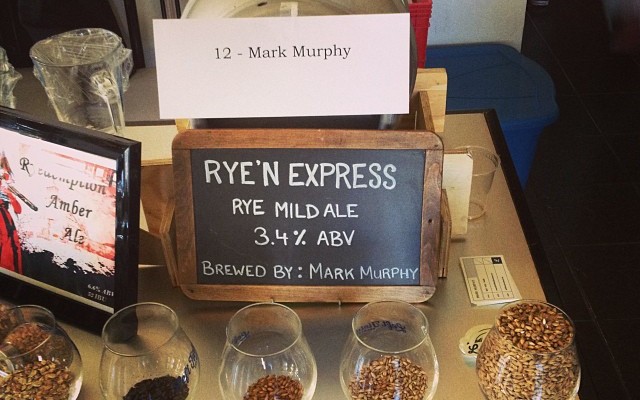 12 - Mark Murphy
RYE'N EXPRESS
RYE MILD ALE
3.4% ABV
BREWED BY: MARK MURPHY
Redemption
Amber
Ale